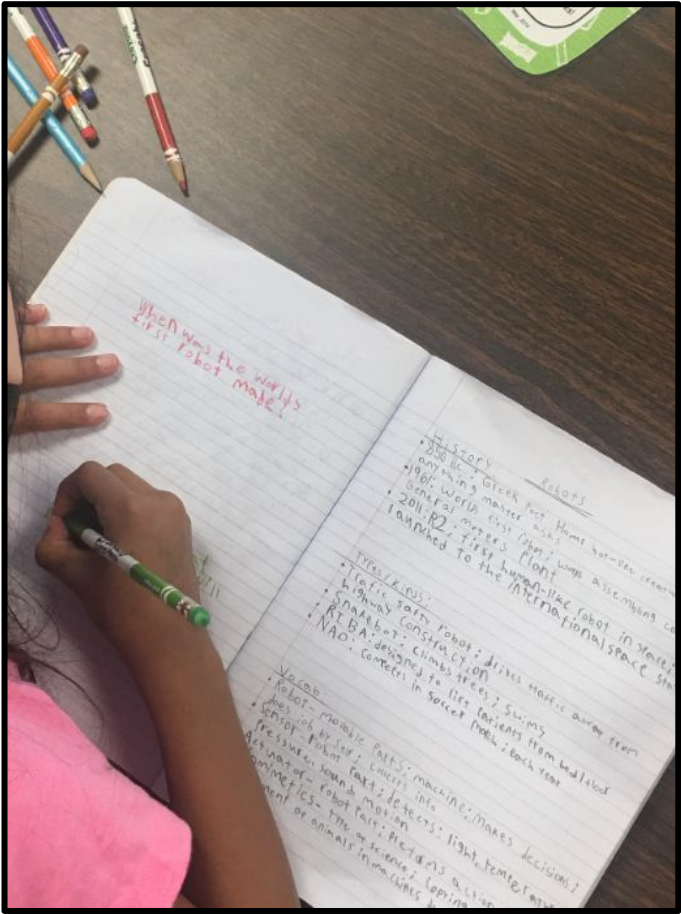 When was the worlds
first robot made?
Robots
History
• 850 BC: Greek Poet Homer
anything master asks
• 1961: Worlds first robot; was assembling
General moters Plant
• 2011: R2, first human-like robot in space;
launched to the international space
Types/Kinds:
• Trafic safty robot; drives traffic away from
highway construction
• Snakebot: climbs trees; swims
• RIBA: designed to lift patients from bed/floor
• NAO: competes in soccer match; each year
Vocab
• Robot- movable parts; machine; makes decisions;
does job by self; collects info
• Sensor- robot part; detects: light, temperature
pressure, sound, motion
Actuator- robot part; performs action
type of science; copying
or animals in machines